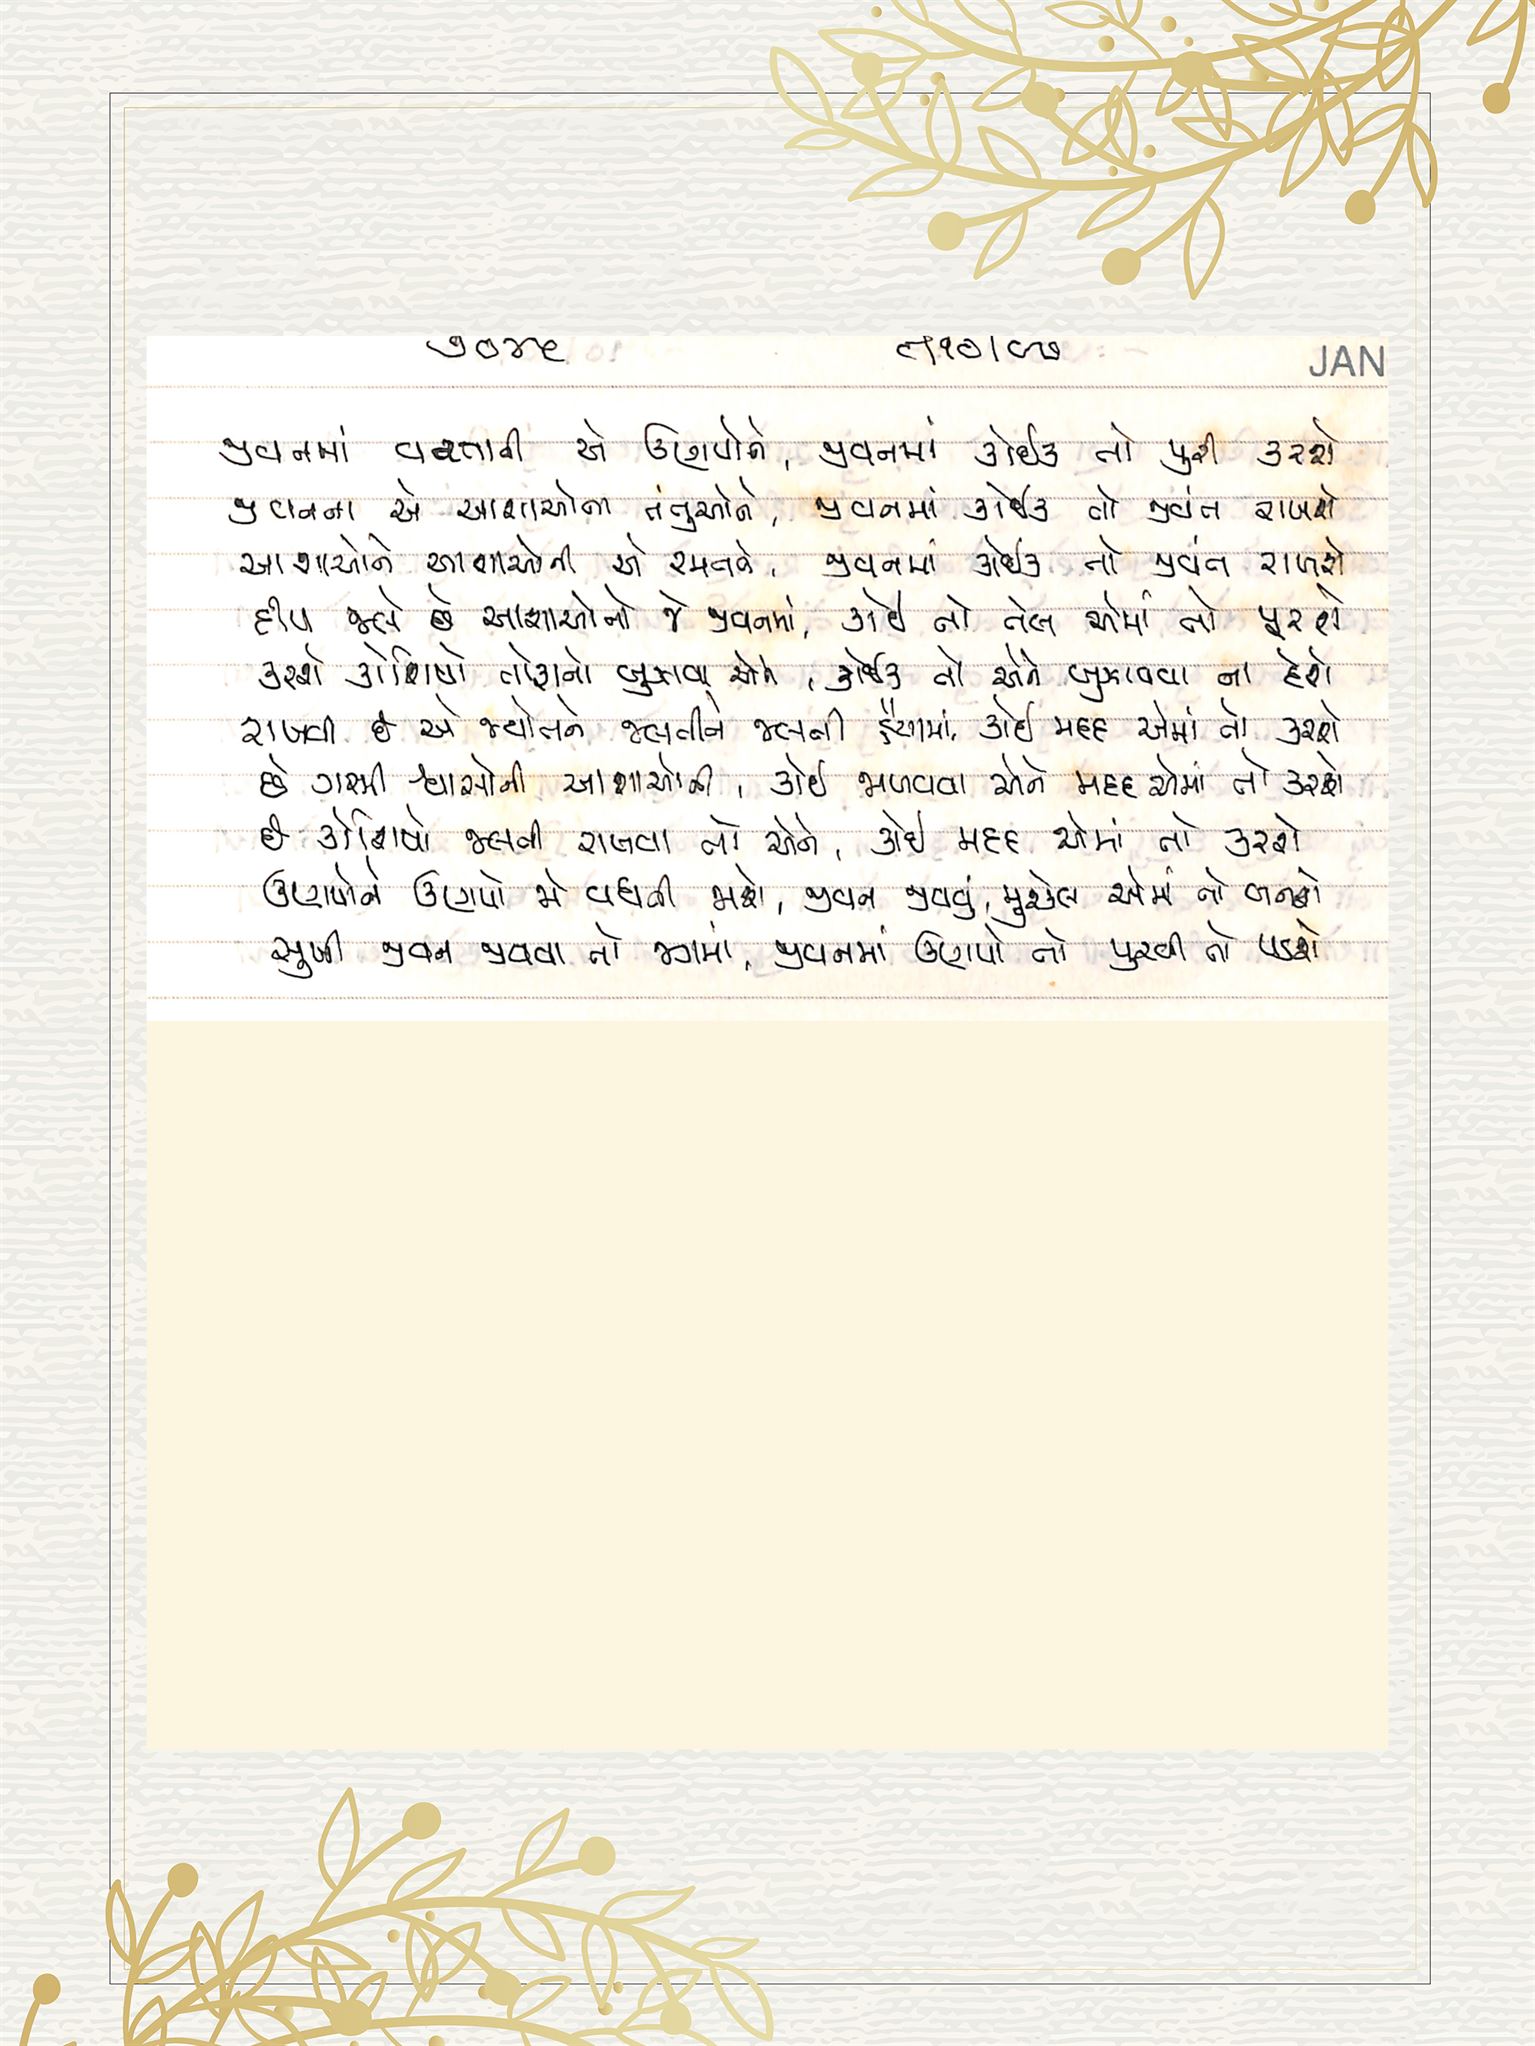 ૭૦૪૯
JAN
જીવનમાં વરતાતી એ ઊણપોને, જીવનમાં કોઈક તો પુરી કરશે
જીવનના એ આશાઓના તંતુઓને, જીવનમાં કોઈક તો જીવંત રાખશે
આશાઓને આશાઓની એ રમતને, જીવનમાં કોઈક તો જીવંત રાખશે
દીપ જલે છે આશાઓનો જે જીવનમાં, કોઈ તો તેલ એમાં તો પૂરશે
કરશે કોશિષો તોફાનો બુઝાવવા એને, કોઈક તો એને બુઝાવવા ના દેશે
રાખવી છે એ જ્યોતને જલતીને જલતી હૈયામાં, કોઈ મદદ એમાં તો કરશે
છે ગરમી શ્વાસોની આશાઓની, કોઈ જાળવવા એને મદદ એમાં તો કરશે
છે કોશિષો જલતી રાખવા તો એને, કોઈ મદદ એમાં તો કરશે
ઊણપોને ઊણપો જો વધતી જાશે, જીવન જીવવું, મુશ્કેલ એમાં તો બનશે
સુખી જીવન જીવવા તો જગમાં, જીવનમાં ઊણપો તો પુરવી તો પડશે